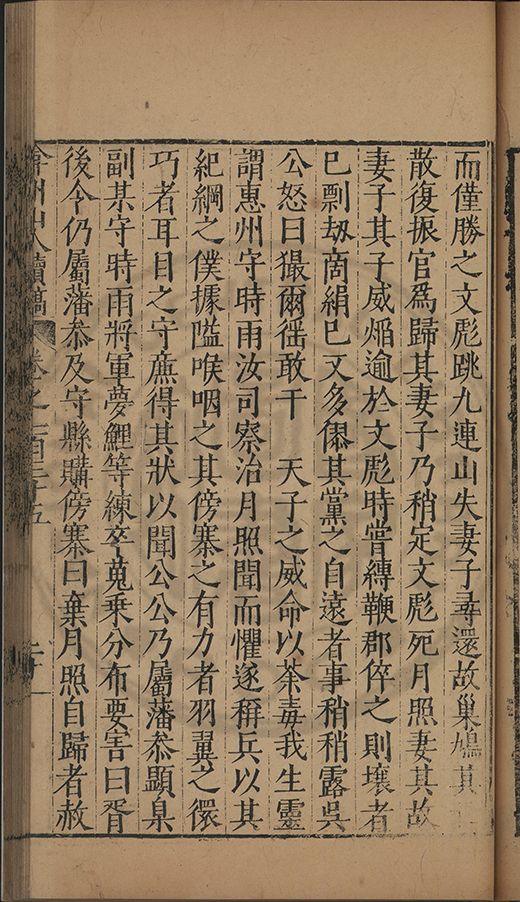 而僅勝之文彪跳九連山失妻子尋還故巢鳩其
散復振官爲歸其妻子乃稍定文彪死月照妻其故
妻子其子威熖逾於文彪時嘗縛鞭郡倅之則壤者
已剽劫啇絹已又多傫其黨之自遠者事稍稍露吳
公怒曰撮爾徭敢干　天子之威命以荼毒我生靈
謂惠州守時雨汝司察治月照聞而懼遂稱兵以其
紀綱之僕據隘喉咽之其傍寨之有力者羽翼之儇
巧者耳目之守廉得其狀以聞公公乃屬藩叅顯臬
副某守時雨將軍夢鯉等練卒蒐乘分布要害曰胥
後令仍屬藩叅及守縣購傍寨曰棄月照自歸者赦
弇州山人續稿　卷之一百三十五